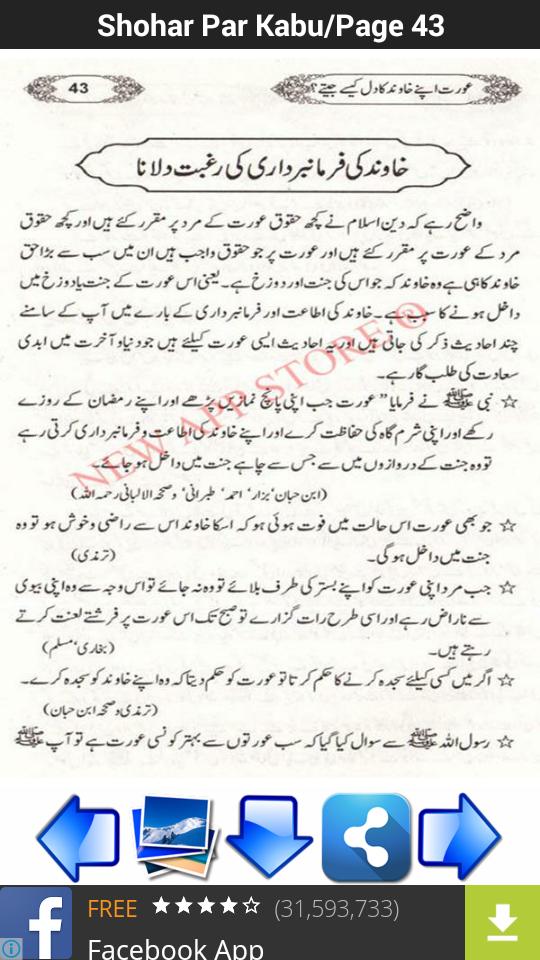 Shohar Par Kabu/Page 43
43
عورت اپنے خاوند کا دل کیسے جیتے؟
خاوند کی فرمانبرداری کی رغبت دلانا
واضح رہے کہ دین اسلام نے کچھ حقوق عورت کے مرد پر مقرر کئے ہیں اور کچھ حقوق
مرد کے عورت پر مقرر کئے ہیں اور عورت پر جو حقوق واجب ہیں ان میں سب سے بڑا حق
خاوند کا ہی ہے وہ خاوند کہ جو اس کی جنت اور دوزخ ہے۔ یعنی اس عورت کے جنت یا دوزخ میں
داخل ہونے کا سبب ہے۔ خاوند کی اطاعت اور فرمانبرداری کے بارے میں آپ کے سامنے
چند احادیث ذکر کی جاتی ہیں اور یہ احادیث ایسی عورت کیلئے ہیں جو دنیا و آخرت میں ابدی
سعادت کی طلب گار ہے۔
☆ نبی ﷺ نے فرمایا ”عورت جب اپنی پانچ نمازیں پڑھے اور اپنے رمضان کے روزے
رکھے اور اپنی شرم گاہ کی حفاظت کرے اور اپنے خاوند کی اطاعت و فرمانبرداری کرتی رہے
تو وہ جنت کے دروازوں میں سے جس سے چاہے جنت میں داخل ہو جائے۔
(ابن حبان، بزار، احمد، طبرانی، وصححہ الالبانی رحمہ اللہ)
☆ جو بھی عورت اس حالت میں فوت ہوئی ہو کہ اسکا خاوند اس سے راضی و خوش ہو تو وہ
جنت میں داخل ہوگی۔ (ترمذی)
☆ جب مرد اپنی عورت کو اپنے بستر کی طرف بلائے تو وہ نہ جائے تو اس وجہ سے وہ اپنی بیوی
سے ناراض رہے اور اسی طرح رات گزارے تو صبح تک اس عورت پر فرشتے لعنت کرتے
رہتے ہیں۔ (بخاری، مسلم)
☆ اگر میں کسی کیلئے سجدہ کرنے کا حکم کرتا تو عورت کو حکم دیتا کہ وہ اپنے خاوند کو سجدہ کرے۔
(ترمذی وصححہ ابن حبان)
☆ رسول اللہ ﷺ سے سوال کیا گیا کہ سب عورتوں سے بہتر کونسی عورت ہے تو آپ ﷺ
NEW APP STORE ®
FREE ★★★★☆ (31,593,733)
Facebook App